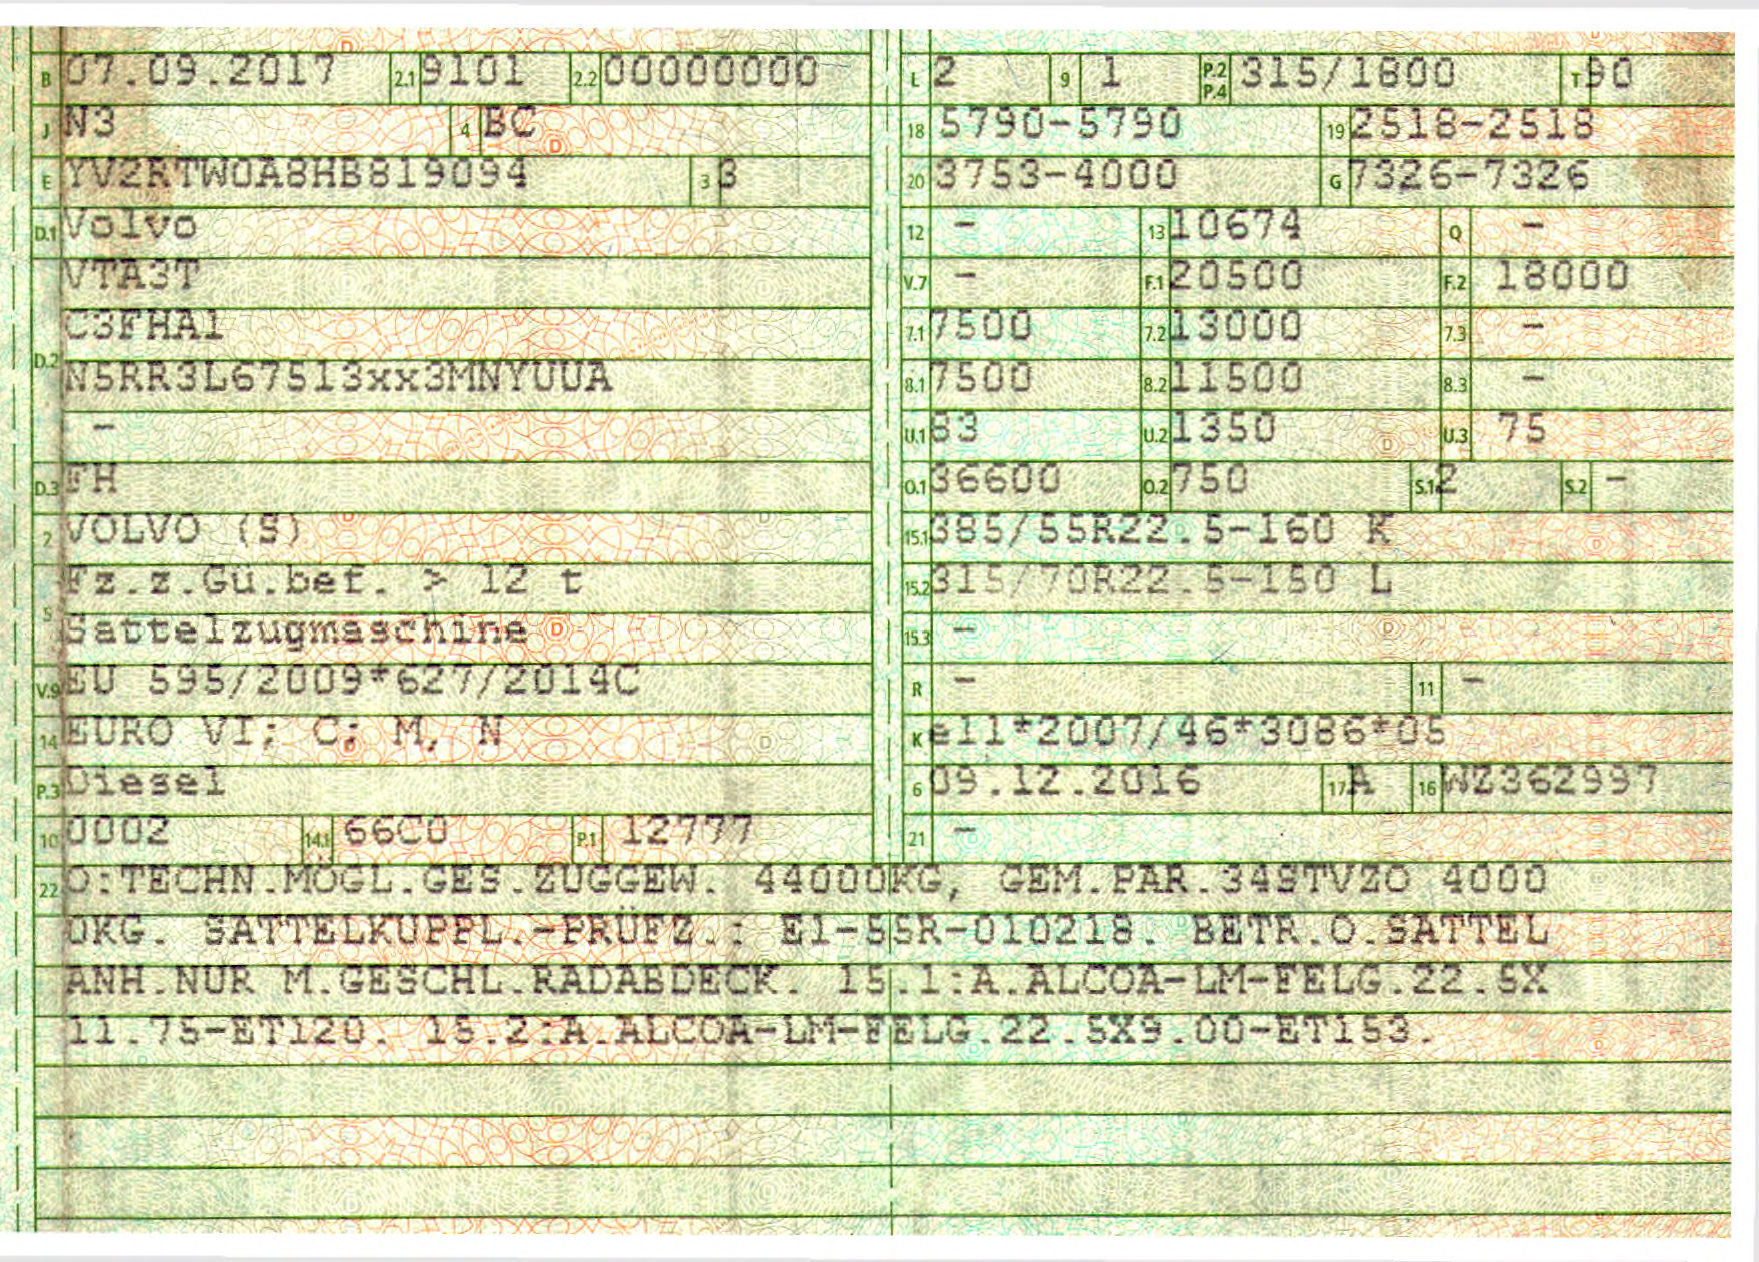 B 07.09.2017 2.1 9101 2.2 00000000
J N3 4 BC
E YV2RTW0A8HB819094 3 3
D.1 Volvo
VTA3T
D.2 C3FHA1
N5RR3L67513xx3MNYUUA
-
D.3 FH
2 VOLVO (S)
5 Fz.z.Gü.bef. > 12 t
Sattelzugmaschine
V.9 EU 595/2009*627/2014C
14 EURO VI; C; M, N
P.3 Diesel
10 0002 14.1 66C0 P.1 12777
L 2 9 1 P.2 P.4 315/1800 T 90
18 5790-5790 19 2518-2518
20 3753-4000 G 7326-7326
12 - 13 10674 Q -
V.7 - F.1 20500 F.2 18000
7.1 7500 7.2 13000 7.3 -
8.1 7500 8.2 11500 8.3 -
U.1 83 U.2 1350 U.3 75
O.1 36600 O.2 750 S.1 2 S.2 -
15.1 385/55R22.5-160 K
15.2 315/70R22.5-150 L
15.3 -
R - 11 -
K e11*2007/46*3086*05
6 09.12.2016 17 A 16 WZ362997
21 -
22 O:TECHN.MÖGL.GES.ZUGGEW. 44000KG, GEM.PAR.34STVZO 4000
0KG. SATTELKUPPL.-PRÜFZ.: E1-55R-010218. BETR.O.SATTEL
ANH.NUR M.GESCHL.RADABDECK. 15.1:A.ALCOA-LM-FELG.22.5X
11.75-ET120. 15.2:A.ALCOA-LM-FELG.22.5X9.00-ET153.